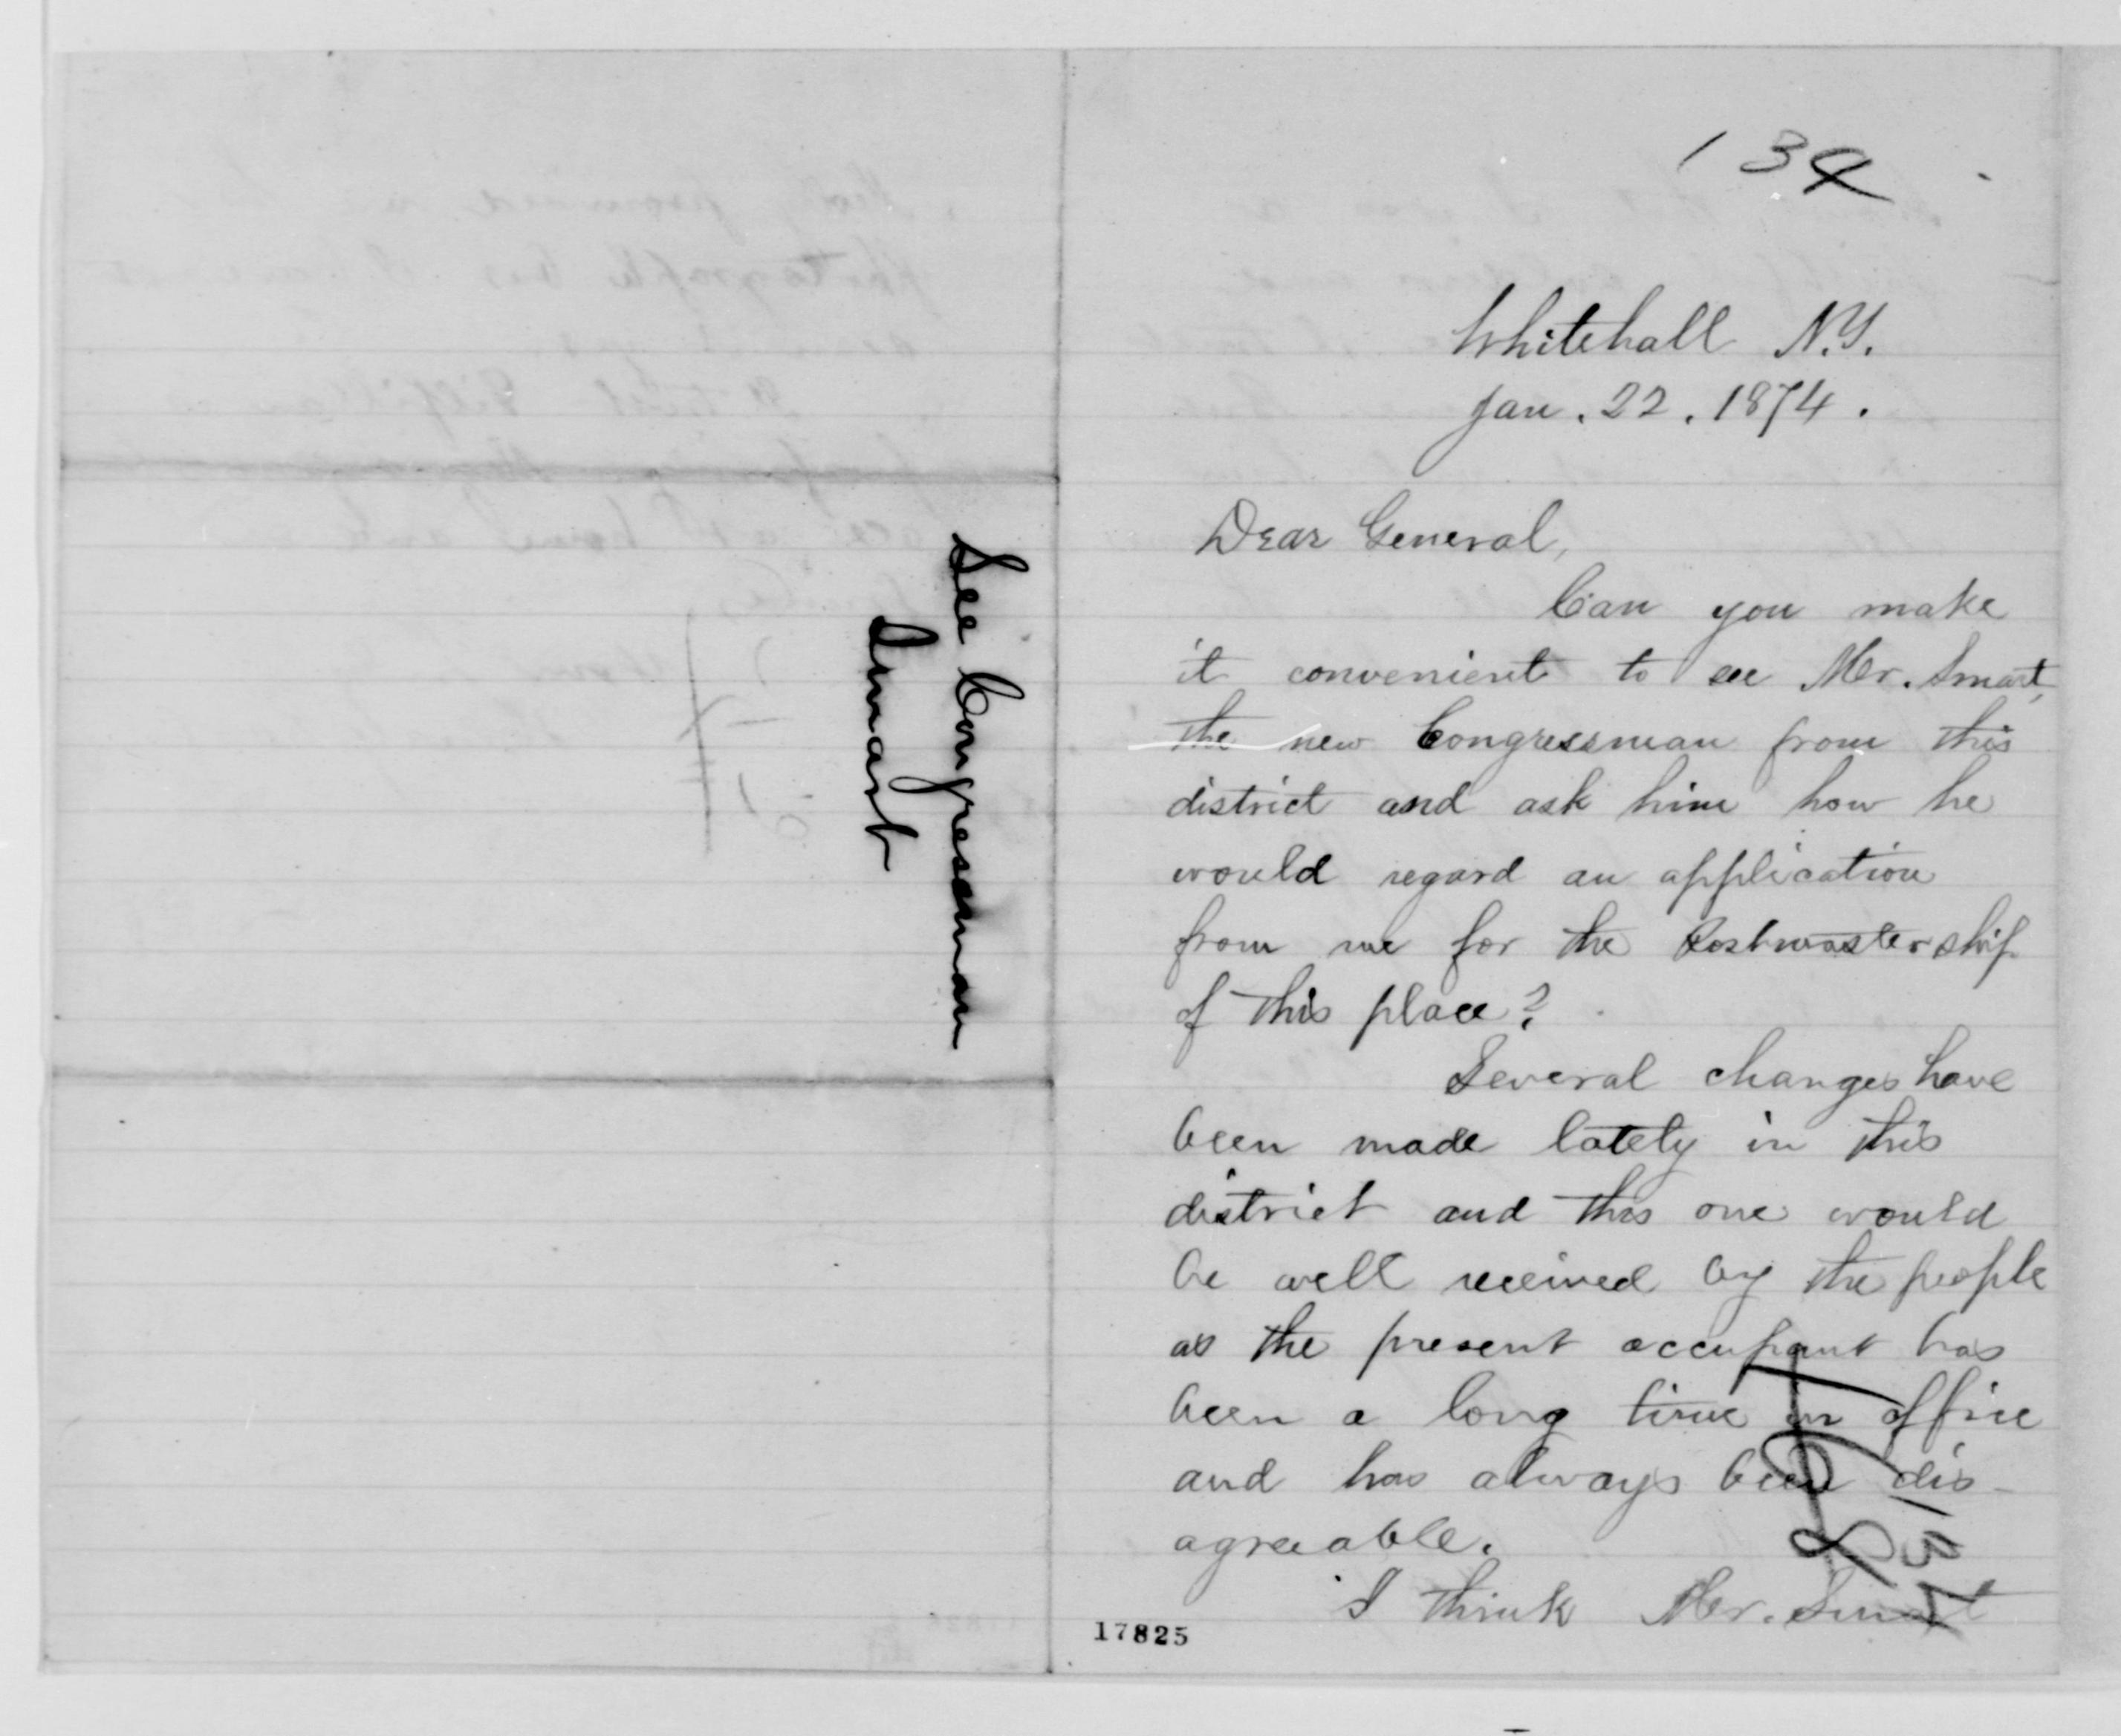 See Congressman
Smart
134
Whitehall N.Y.
Jan. 22. 1874.
Dear General,
Can you make
it convenient to see Mr. Smart,
the new Congressman from this
district and ask him how he
would regard an application
from me for the Postmastership
of this place?
Several changes have
been made lately in this
district and this one would
be well received by the people
as the present occupant has
been a long time in office
and has always been dis-
agreeable.
I think Mr. Smart
134
17825